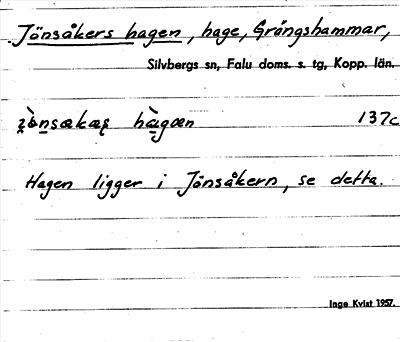 Jönsåkers hagen, hage, Grängshammar,
Silvbergs sn, Falu doms. s. tg, Kopp. län.
137c
Hagen ligger i Jönsåkern, se detta.
Inga Kvist 1957.